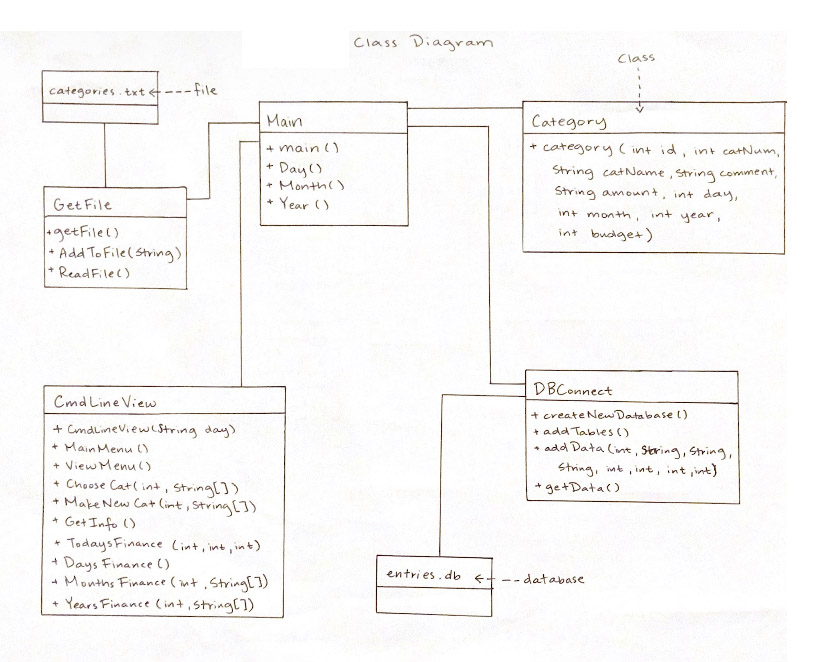 Class Diagram
categories.txt
file
GetFile
+getFile()
+ AddToFile(String)
+ ReadFile()
Main
+ main()
+ Day()
+ Month()
+ Year ()
Class
Category
+ category ( int id, int catNum,
String catName, String comment,
String amount, int day,
int month, int year,
int budget)
CmdLineView
+ CmdLineView(String day)
+ MainMenu ()
+ ViewMenu()
+ ChooseCat(int, String[])
+ MakeNewCat(int, String[])
+ GetInfo ()
+ TodaysFinance (int, int, int)
+ DaysFinance ()
+ MonthsFinance (int, String[])
+ YearsFinance (int, String[])
DBConnect
+ createNewDatabase()
+ addTables()
+ addData(int, String, String,
String, int, int, int, int)
+ getData()
entries.db
database